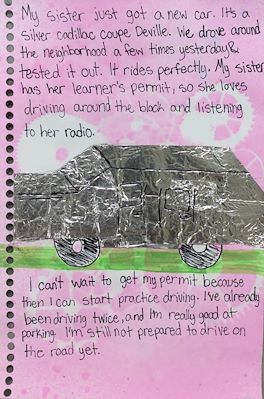 My sister just got a new car. It's a
silver cadillac coupe Deville. We drove around
the neighborhood a few times yesterday &
tested it out. It rides perfectly. My sister
has her learner's permit, so she loves
driving around the block and listening
to her radio.
I can't wait to get my permit because
then I can start practice driving. I've already
been driving twice, and I'm really good at
parking. I'm still not prepared to drive on
the road yet.